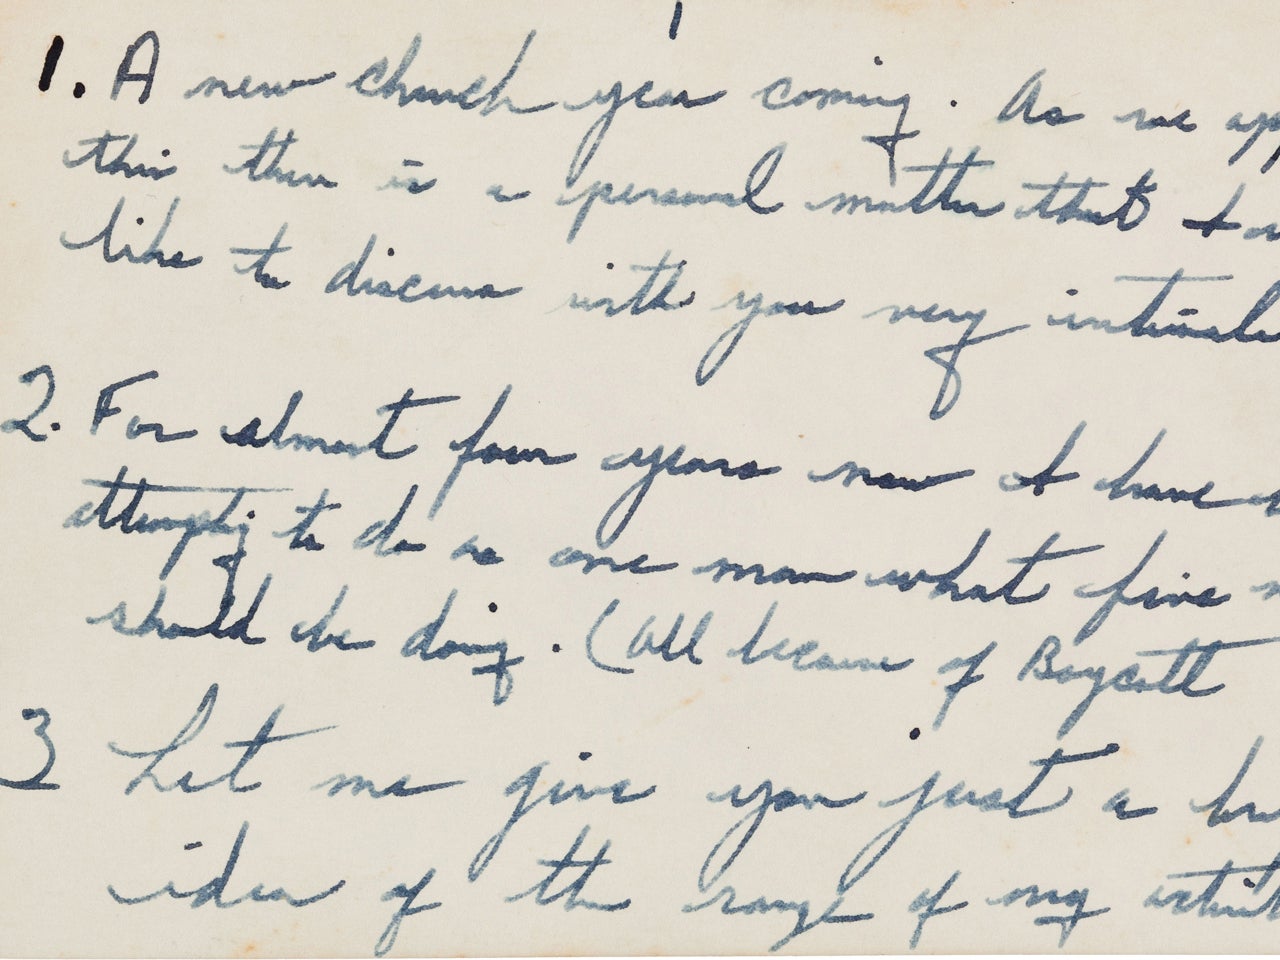 1. A new church year coming. As we app
this there is a personal matter that I w
like to discuss with you very intimate
2. For almost four years now I have
attempting to do as one man what five
should be doing. (All because of Boycott
3 Let me give you just a
idea of the range of my activit